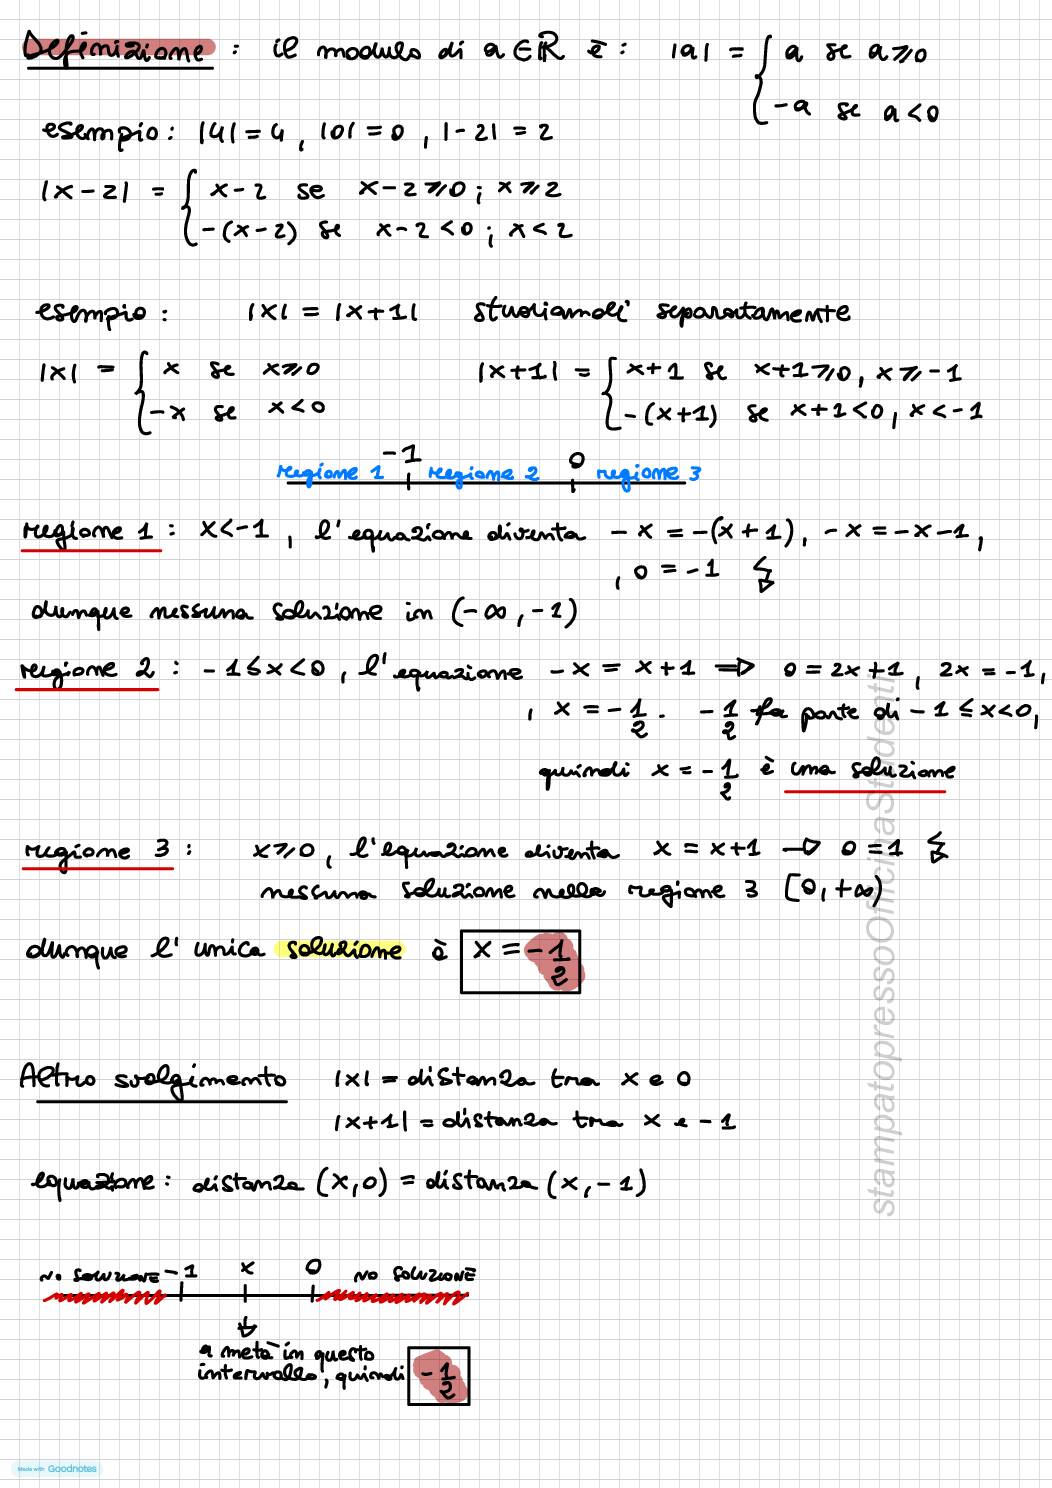 Definizione : il modulo di a ∈ ℝ è : |a| = { a se a ⩾ 0
-a se a < 0
esempio : |4| = 4 , |0| = 0 , |-2| = 2
|x-2| = { x-2 se x-2 ⩾ 0 ; x ⩾ 2
-(x-2) se x-2 < 0 ; x < 2
esempio : |x| = |x+1| studiamoli separatamente
|x| = { x se x ⩾ 0 |x+1| = { x+1 se x+1 ⩾ 0, x ⩾ -1
-x se x < 0 -(x+1) se x+1 < 0, x < -1
-1 0
regione 1 regione 2 regione 3
regione 1 : x < -1 , l'equazione diventa -x = -(x+1), -x = -x-1,
, 0 = -1 ↯
dunque nessuna soluzione in (-∞, -1)
regione 2 : -1 ≤ x < 0 , l'equazione -x = x+1 ⇒ 0 = 2x+1, 2x = -1,
, x = -1/2 . -1/2 fa parte di -1 ≤ x < 0,
quindi x = -1/2 è una soluzione
regione 3 : x ⩾ 0 , l'equazione diventa x = x+1 → 0 = 1 ↯
nessuna soluzione nella regione 3 [0, +∞)
dunque l'unica soluzione è x = -1/2
Altro svolgimento |x| = distanza tra x e 0
|x+1| = distanza tra x e -1
equazione : distanza (x,0) = distanza (x,-1)
NO SOLUZIONE -1 x 0 NO SOLUZIONE
a metà in questo
intervallo, quindi -1/2
stampatopressoOfficinaStudenti
Made with Goodnotes